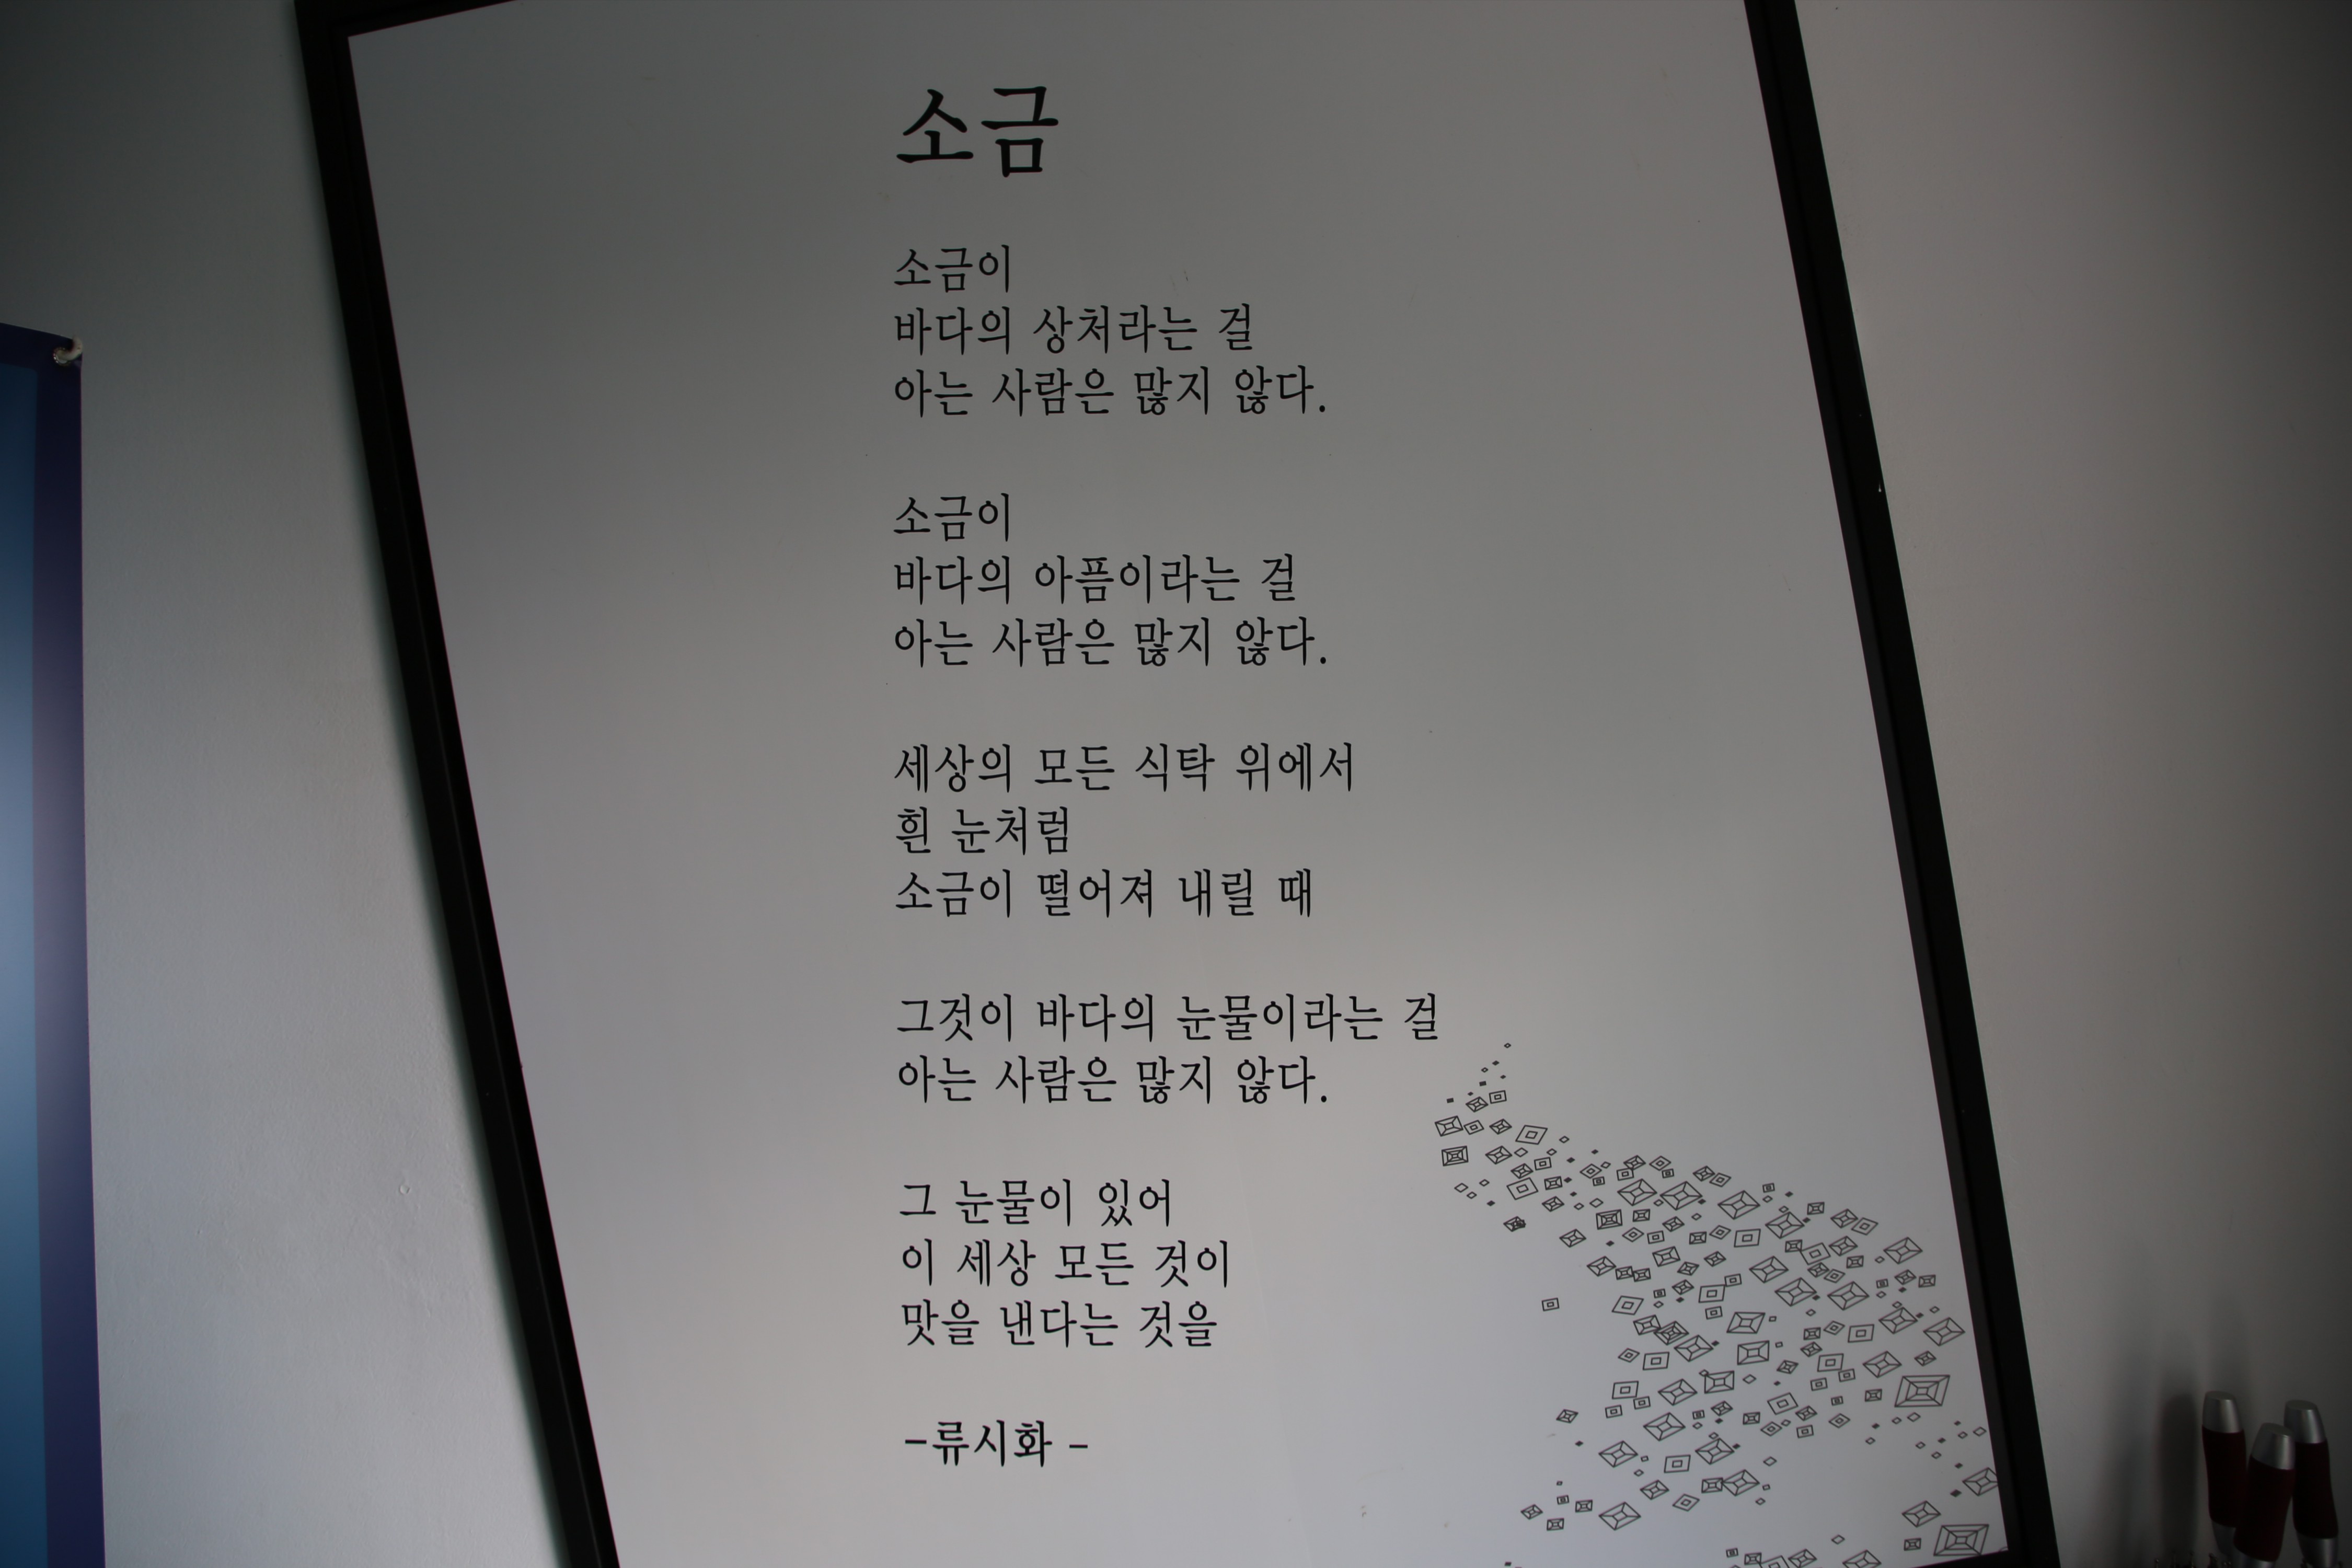 소금
소금이
바다의 상처라는 걸
아는 사람은 많지 않다.
소금이
바다의 아픔이라는 걸
아는 사람은 많지 않다.
세상의 모든 식탁 위에서
흰 눈처럼
소금이 떨어져 내릴 때
그것이 바다의 눈물이라는 걸
아는 사람은 많지 않다.
그 눈물이 있어
이 세상 모든 것이
맛을 낸다는 것을
-류시화 -